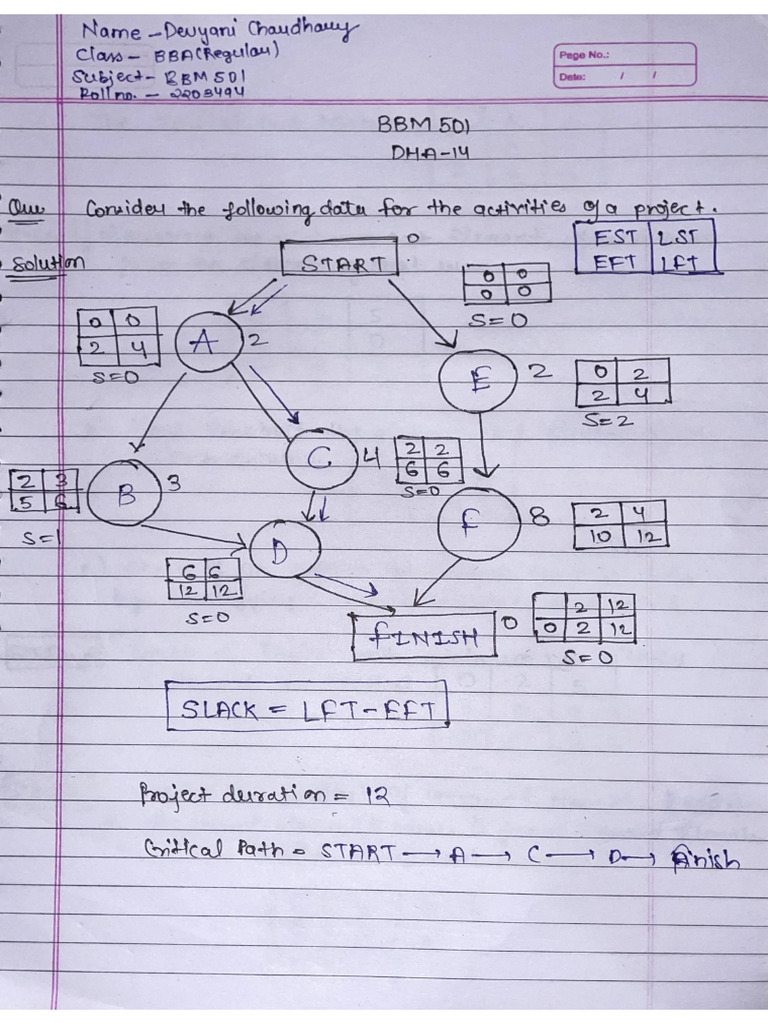 Name - Devyani Chaudhary
Class - BBA(Regular)
Subject - BBM 501
Roll no. - 2203494
Page No.:
Date: / /
BBM 501
DHA-14
Que Consider the following data for the activities of a project.
Solution
START 0
EST LST
EFT LFT
0 0
0 0
S=0
0 0
2 4
S=0
A 2
E 2
0 2
2 4
S=2
C 4
2 2
6 6
S=0
2 3
5 6
S=1
B 3
D
6 6
12 12
S=0
F 8
2 4
10 12
FINISH 0
2 12
0 2 12
S=0
SLACK = LFT-EFT
Project duration = 12
Critical Path = START → A → C → D → Finish